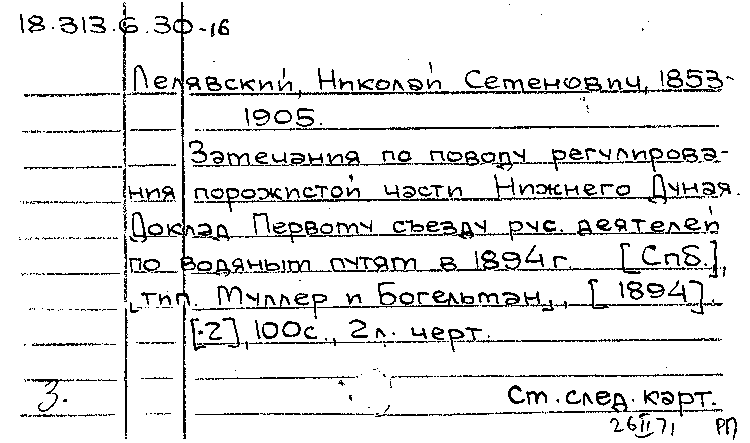 18.313.6.30-16
Лелявский, Николай Семенович, 1853-
1905.
Замечания по поводу регулирова-
ния порожистой части Нижнего Дуная.
Доклад Первому съезду рус. деятелей
по водяным путям в 1894 г. [Спб.],
тип. Муллер и Богельман, [1894].
[2], 100с., 2л. черт.
3. См. след. карт.
26 II 71 РП